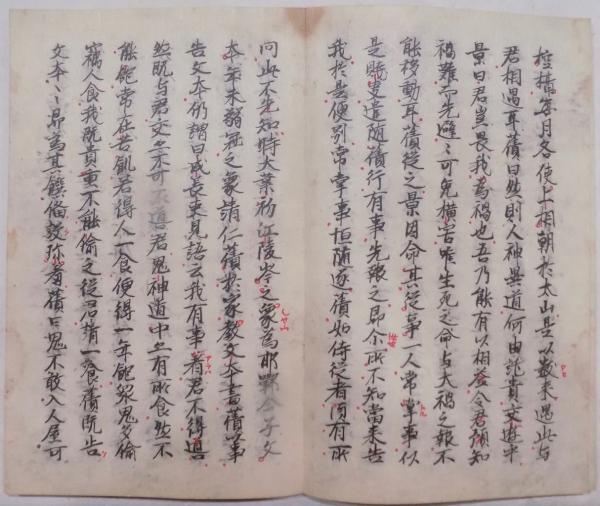 控攝每月各使上相朝於太山是以數來過此与
君相遇耳蒨曰然則人神異道何由訛貴交遊中
景曰君豈畏我為禍也吾乃能有以相益令君預知
禍難而先避之可免橫害唯生死之命与大禍之報不
能移動耳蒨從之景因命其從事一人常掌事以
是賤吏遣隨蒨行有事先報之即尒所不知當来告
我於是便別常掌事恒随逐蒨如侍從者須有所
问此不先知時大業初江陵岑之象為邯鄲令子文
本年未弱冠之象請仁蒨於家教文本書蒨以事
告文本仍謂曰成長吏見語云我有事著君不得道
然既与君交亦不可不道君鬼神道中亦有所食然不
能飽常在苦飢若得人一食便得一年飽衆鬼多偷
竊人食我既貴重不能偷之從君請一食蒨既告
文本〻〻即為具饌俻設珎羞蒨曰鬼不敢入人屋可